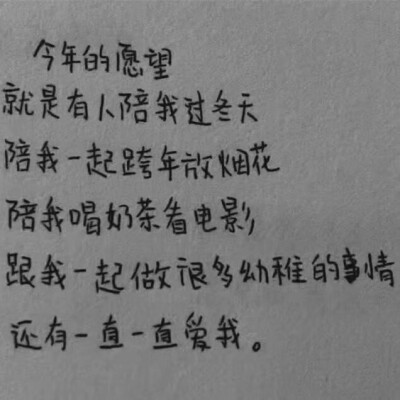 今年的愿望
就是有人陪我过冬天
陪我一起跨年放烟花
陪我喝奶茶看电影
跟我一起做很多幼稚的事情
还有一直一直爱我。